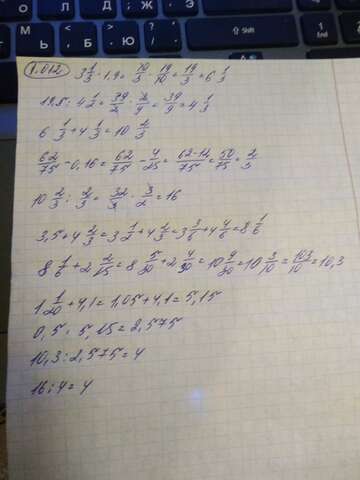 1.012 3 1/3 · 1,9 = 10/3 · 19/10 = 19/3 = 6 1/3
19,5 : 4 1/2 = 39/2 · 2/9 = 39/9 = 4 1/3
6 1/3 + 4 1/3 = 10 2/3
62/75 - 0,16 = 62/75 - 4/25 = 62-12/75 = 50/75 = 2/3
10 2/3 : 2/3 = 32/3 · 3/2 = 16
3,5 + 4 2/3 = 3 1/2 + 4 2/3 = 3 3/6 + 4 4/6 = 8 1/6
8 1/6 + 2 2/15 = 8 5/30 + 2 4/30 = 10 9/30 = 10 3/10 = 103/10 = 10,3
1 1/20 + 4,1 = 1,05 + 4,1 = 5,15
0,5 · 5,15 = 2,575
10,3 : 2,575 = 4
16 : 4 = 4